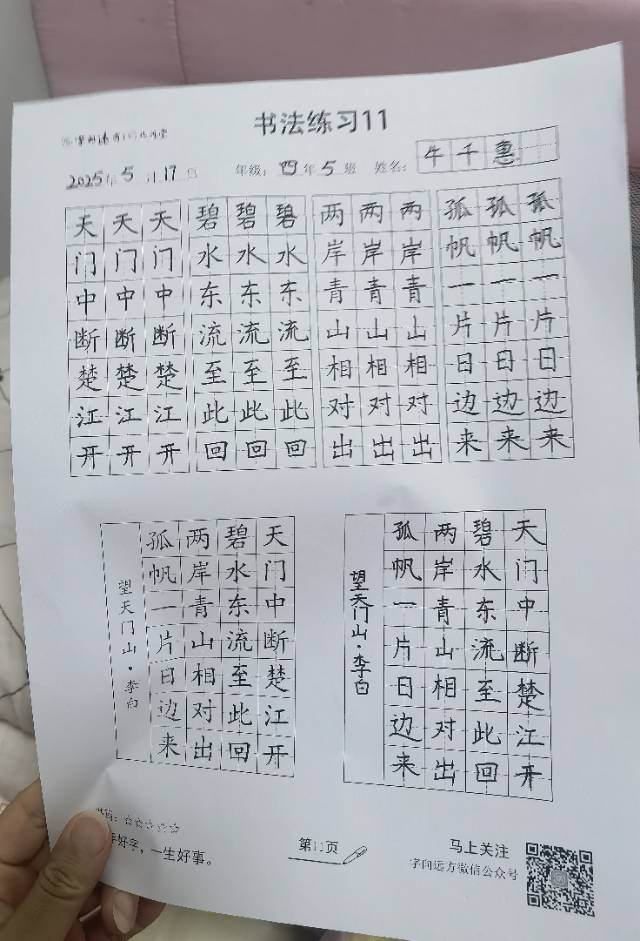 书法练习11
2025年5月17日 年级：四年5班 姓名：牛千惠
天天天 碧碧碧 两两两 孤孤孤
门门门 水水水 岸岸岸 帆帆帆
中中中 东东东 青青青 一一一
断断断 流流流 山山山 片片片
楚楚楚 至至至 相相相 日日日
江江江 此此此 对对对 边边边
开开开 回回回 出出出 来来来
天门中断楚江开
碧水东流至此回
两岸青山相对出
孤帆一片日边来
望天门山·李白
天门中断楚江开
碧水东流至此回
两岸青山相对出
孤帆一片日边来
望天门山·李白
☆☆☆☆☆
好字，一生好事。
第11页
马上关注
字向远方微信公众号